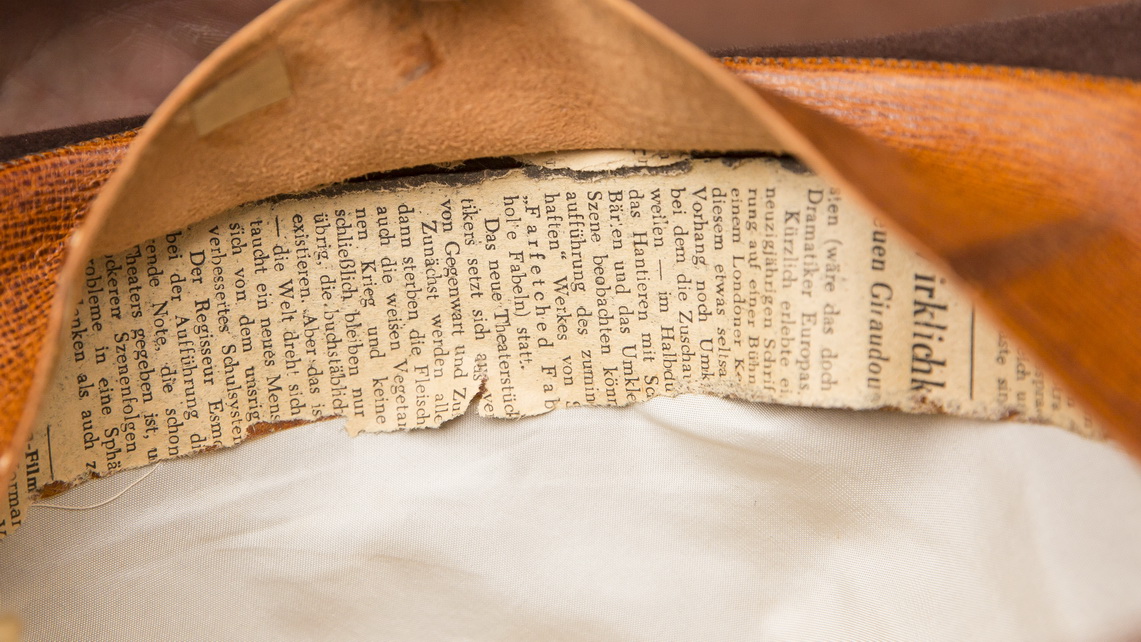 irklichk
euen Giraudou
a!en (wäre das doch
Dramatiker Europas.
Kürzlich erlebte ei
neuzigjährigen Schrif
rung auf einer Bühn
einem Londoner K-
diesem etwas seltsa
Vorhang noch Umk
bei dem die Zuschat
weilen — im Halbdu
das Hantieren mit Sc
Bär.en und das Umkle
Szene beobachten könr
aufführung des zumin
haften“ Werkes von
„Farfetched Fab
hol'e Fabeln) statt.
Das neue Theaterstüc
tikers setzt sich aus
von Gegenwart und Z
Zunächst werden alle
dann sterben die Fleisch
auch die weisen Vegetar
nen. Krieg und keine
schließlich bleiben nur
übrig, die buchstäblid
existieren. Aber das is
— die Welt dreh! sich
taucht ein neues Mens
sich von dem unsrig
verbessertes Schulsysten
Der Regisseur Esme
bei der Aufführung di
rende Note, die schon
heaters gegeben ist, u
ckeren Szenenfolgen
robleme in eine Sphä
anken als auch z
-Film
ormar